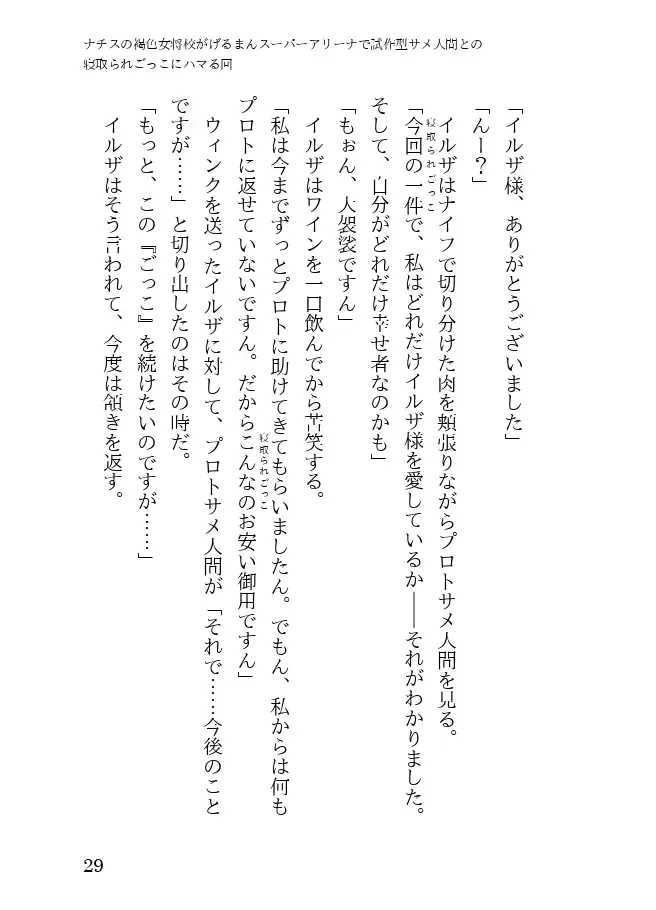 ナチスの褐色女将校がげるまんスーパーアリーナで試作型サメ人間との
寝取られごっこにハマる回
「イルザ様、ありがとうございました」
「んー？」
イルザはナイフで切り分けた肉を頬張りながらプロトサメ人間を見る。
「今回の一件で、私はどれだけイルザ様を愛しているか――それがわかりました。
寝取られごっこ
そして、自分がどれだけ幸せ者なのかも」
「もぉん、大袈裟ですん」
イルザはワインを一口飲んでから苦笑する。
「私は今までずっとプロトに助けてきてもらいましたん。でもん、私からは何も
プロトに返せていないですん。だからこんなのお安い御用ですん」
寝取られごっこ
ウィンクを送ったイルザに対して、プロトサメ人間が「それで……今後のこと
ですが……」と切り出したのはその時だ。
「もっと、この『ごっこ』を続けたいのですが……」
イルザはそう言われて、今度は頷きを返す。
29